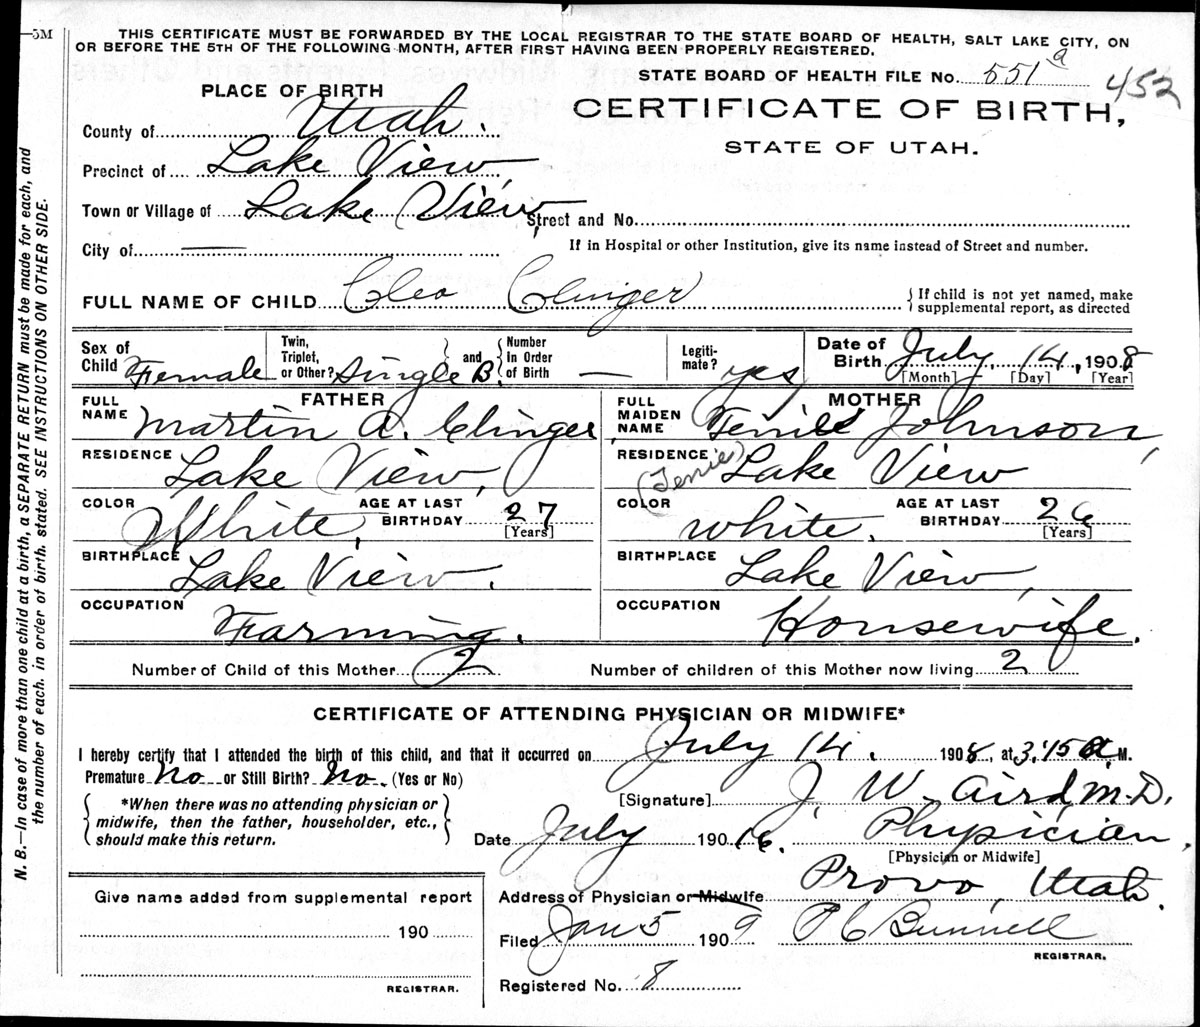 5M
THIS CERTIFICATE MUST BE FORWARDED BY THE LOCAL REGISTRAR TO THE STATE BOARD OF HEALTH, SALT LAKE CITY, ON
OR BEFORE THE 5TH OF THE FOLLOWING MONTH, AFTER FIRST HAVING BEEN PROPERLY REGISTERED.
STATE BOARD OF HEALTH FILE No. 551 a 452
PLACE OF BIRTH
CERTIFICATE OF BIRTH,
STATE OF UTAH.
County of Utah.
Precinct of Lake View,
Town or Village of Lake View, Street and No.
City of
If in Hospital or other Institution, give its name instead of Street and number.
FULL NAME OF CHILD Cleo Clinger { If child is not yet named, make supplemental report, as directed
Sex of Child Female Twin, Triplet, or Other? Single B. and Number In Order of Birth — Legiti- mate? yes Date of Birth July, 14, 1908 [Month] [Day] [Year]
FATHER MOTHER
FULL NAME Martin A. Clinger, FULL MAIDEN NAME Johnson,
RESIDENCE Lake View, RESIDENCE (Tennie) Lake View
COLOR White, AGE AT LAST BIRTHDAY 27 [Years] COLOR white, AGE AT LAST BIRTHDAY 26 [Years]
BIRTHPLACE Lake View. BIRTHPLACE Lake View,
OCCUPATION Farming. OCCUPATION Housewife.
Number of Child of this Mother 2 Number of children of this Mother now living 2
CERTIFICATE OF ATTENDING PHYSICIAN OR MIDWIFE*
I hereby certify that I attended the birth of this child, and that it occurred on July 14, 1908, at 3:15 a. M.
Premature No or Still Birth? No. (Yes or No)
*When there was no attending physician or
midwife, then the father, householder, etc.,
should make this return.
[Signature] J. W. Aird, M.D.
Date July 190 16. Physician.
[Physician or Midwife]
Address of Physician or Midwife Provo, Utah.
Filed Jan 5 1909 P C Bunnell
REGISTRAR.
Registered No. 8
Give name added from supplemental report
190
REGISTRAR.
N. B.—In case of more than one child at a birth, a SEPARATE RETURN must be made for each, and
the number of each, in order of birth, stated. SEE INSTRUCTIONS ON OTHER SIDE.